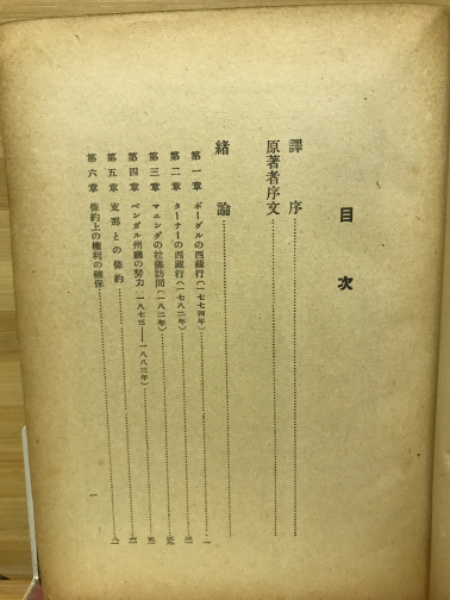 目次
譯序
原著者序文
緒論
第一章 ボーグルの西藏行(一七七四年) 一
第二章 ターナーの西藏行(一七八二年)
第三章 マニングの拉薩訪問(一八一二年)
第四章 ベンガル州廳の努力(一八七三—一八八三年)
第五章 支那との條約
第六章 條約上の權利の確保
一